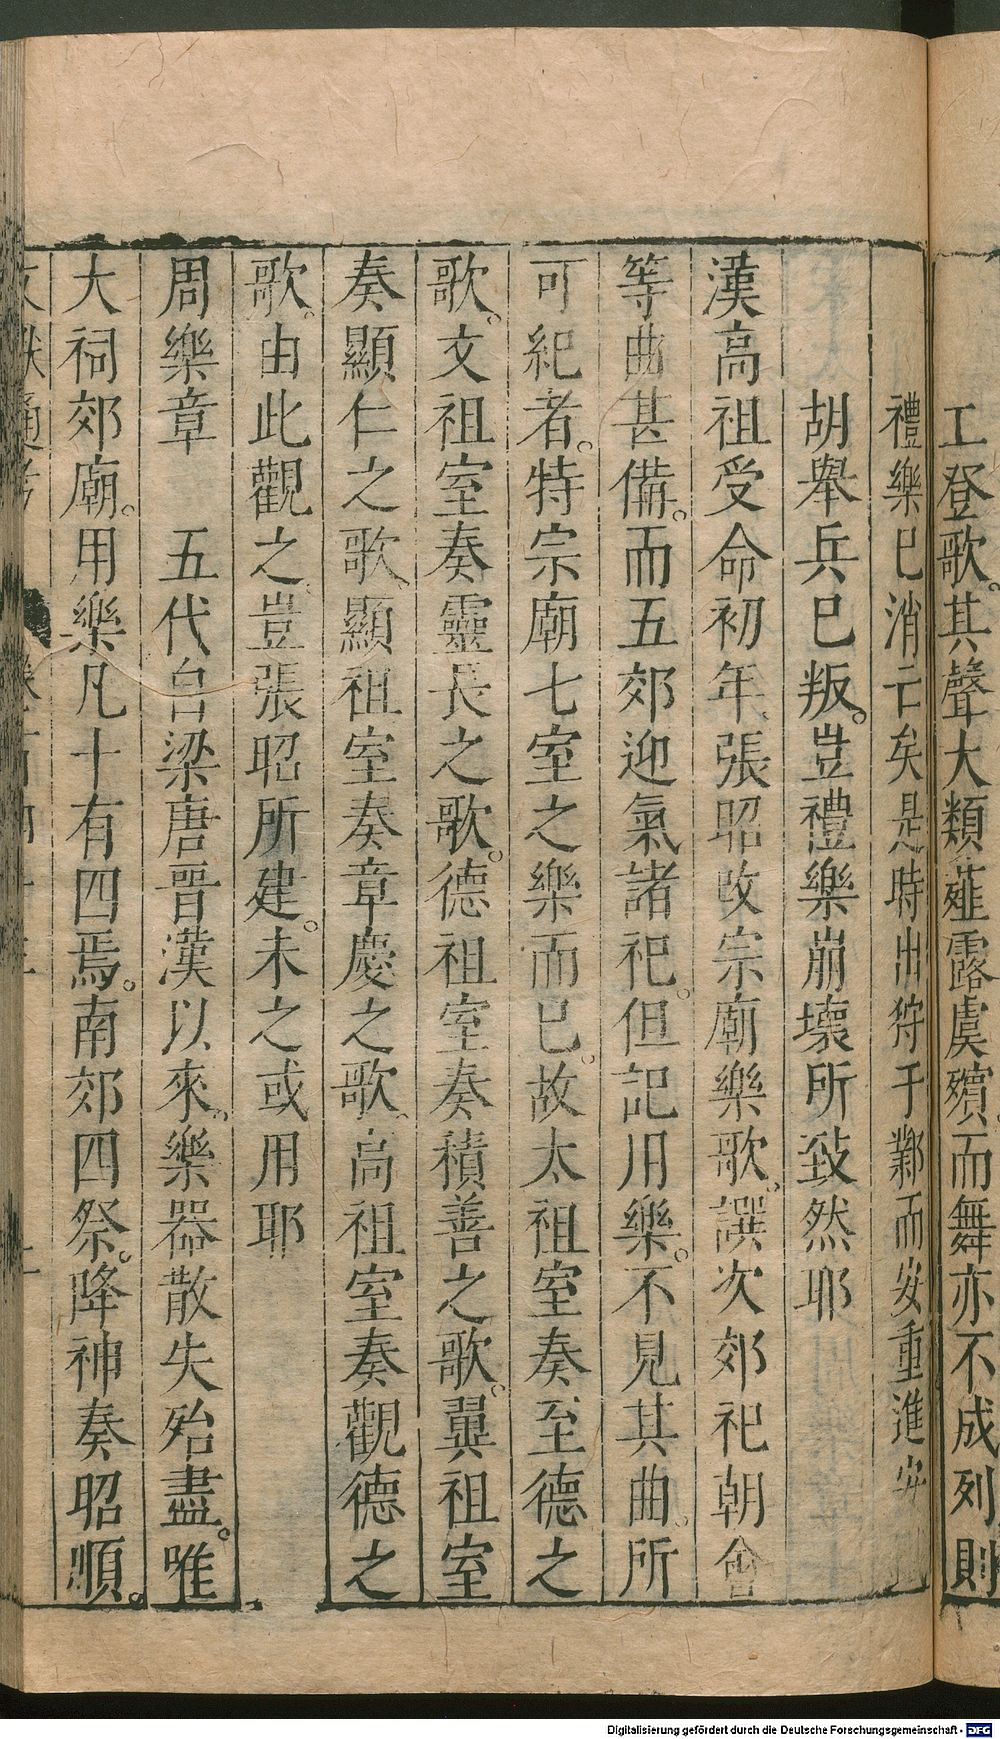 工登歌其聲大類薤露虞殯而舞亦不成列則
禮樂已消亡矣是時出狩于鄴而安重進安
胡舉兵巳叛豈禮樂崩壞所致然耶
漢高祖受命初年張昭改宗廟樂歌譔次郊祀朝會
等曲甚備而五郊迎氣諸祀但記旧樂不見其曲所
可紀者特宗廟七室之樂而已故太祖室奏至德之
歌文祖室奏靈長之歌德祖室奏積善之歌翼祖室
奏顯仁之歌顯祖室奏章慶之歌高祖室奏觀德之
歌由此觀之豈張昭所建未之或用耶
周樂章　五代自梁唐晋漢以來樂器散失殆盡唯
大祠郊廟用樂凡十有四焉南郊四祭降神奏昭順
文獻通考
Digitalisierung gefördert durch die Deutsche Forschungsgemeinschaft - DFG